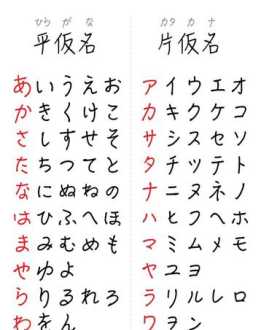 ひら が な
平仮名
あいうえお
かきくけこ
さしすせそ
たちつてと
なにぬねの
はひふへほ
まみむめも
やゆよ
らりるれろ
わをん
カタ カ ナ
片仮名
アイウエオ
カキクケコ
サシスセソ
タチツテト
ナニヌネノ
ハヒフヘホ
マミムメモ
ヤユヨ
ラリルレロ
ワヲン